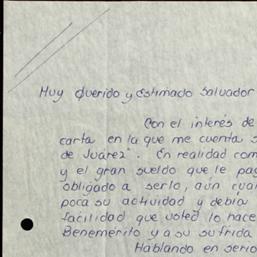 Muy Querido y Estimado Salvador
Con el interés de
carta en la que me cuenta s
de Juárez". En realidad com
y el gran sueldo que le pag
obligado a serlo, aún cua
poca su actividad y debía
facilidad que usted lo hace
Benemérito y a su sufrida
Hablando en serio